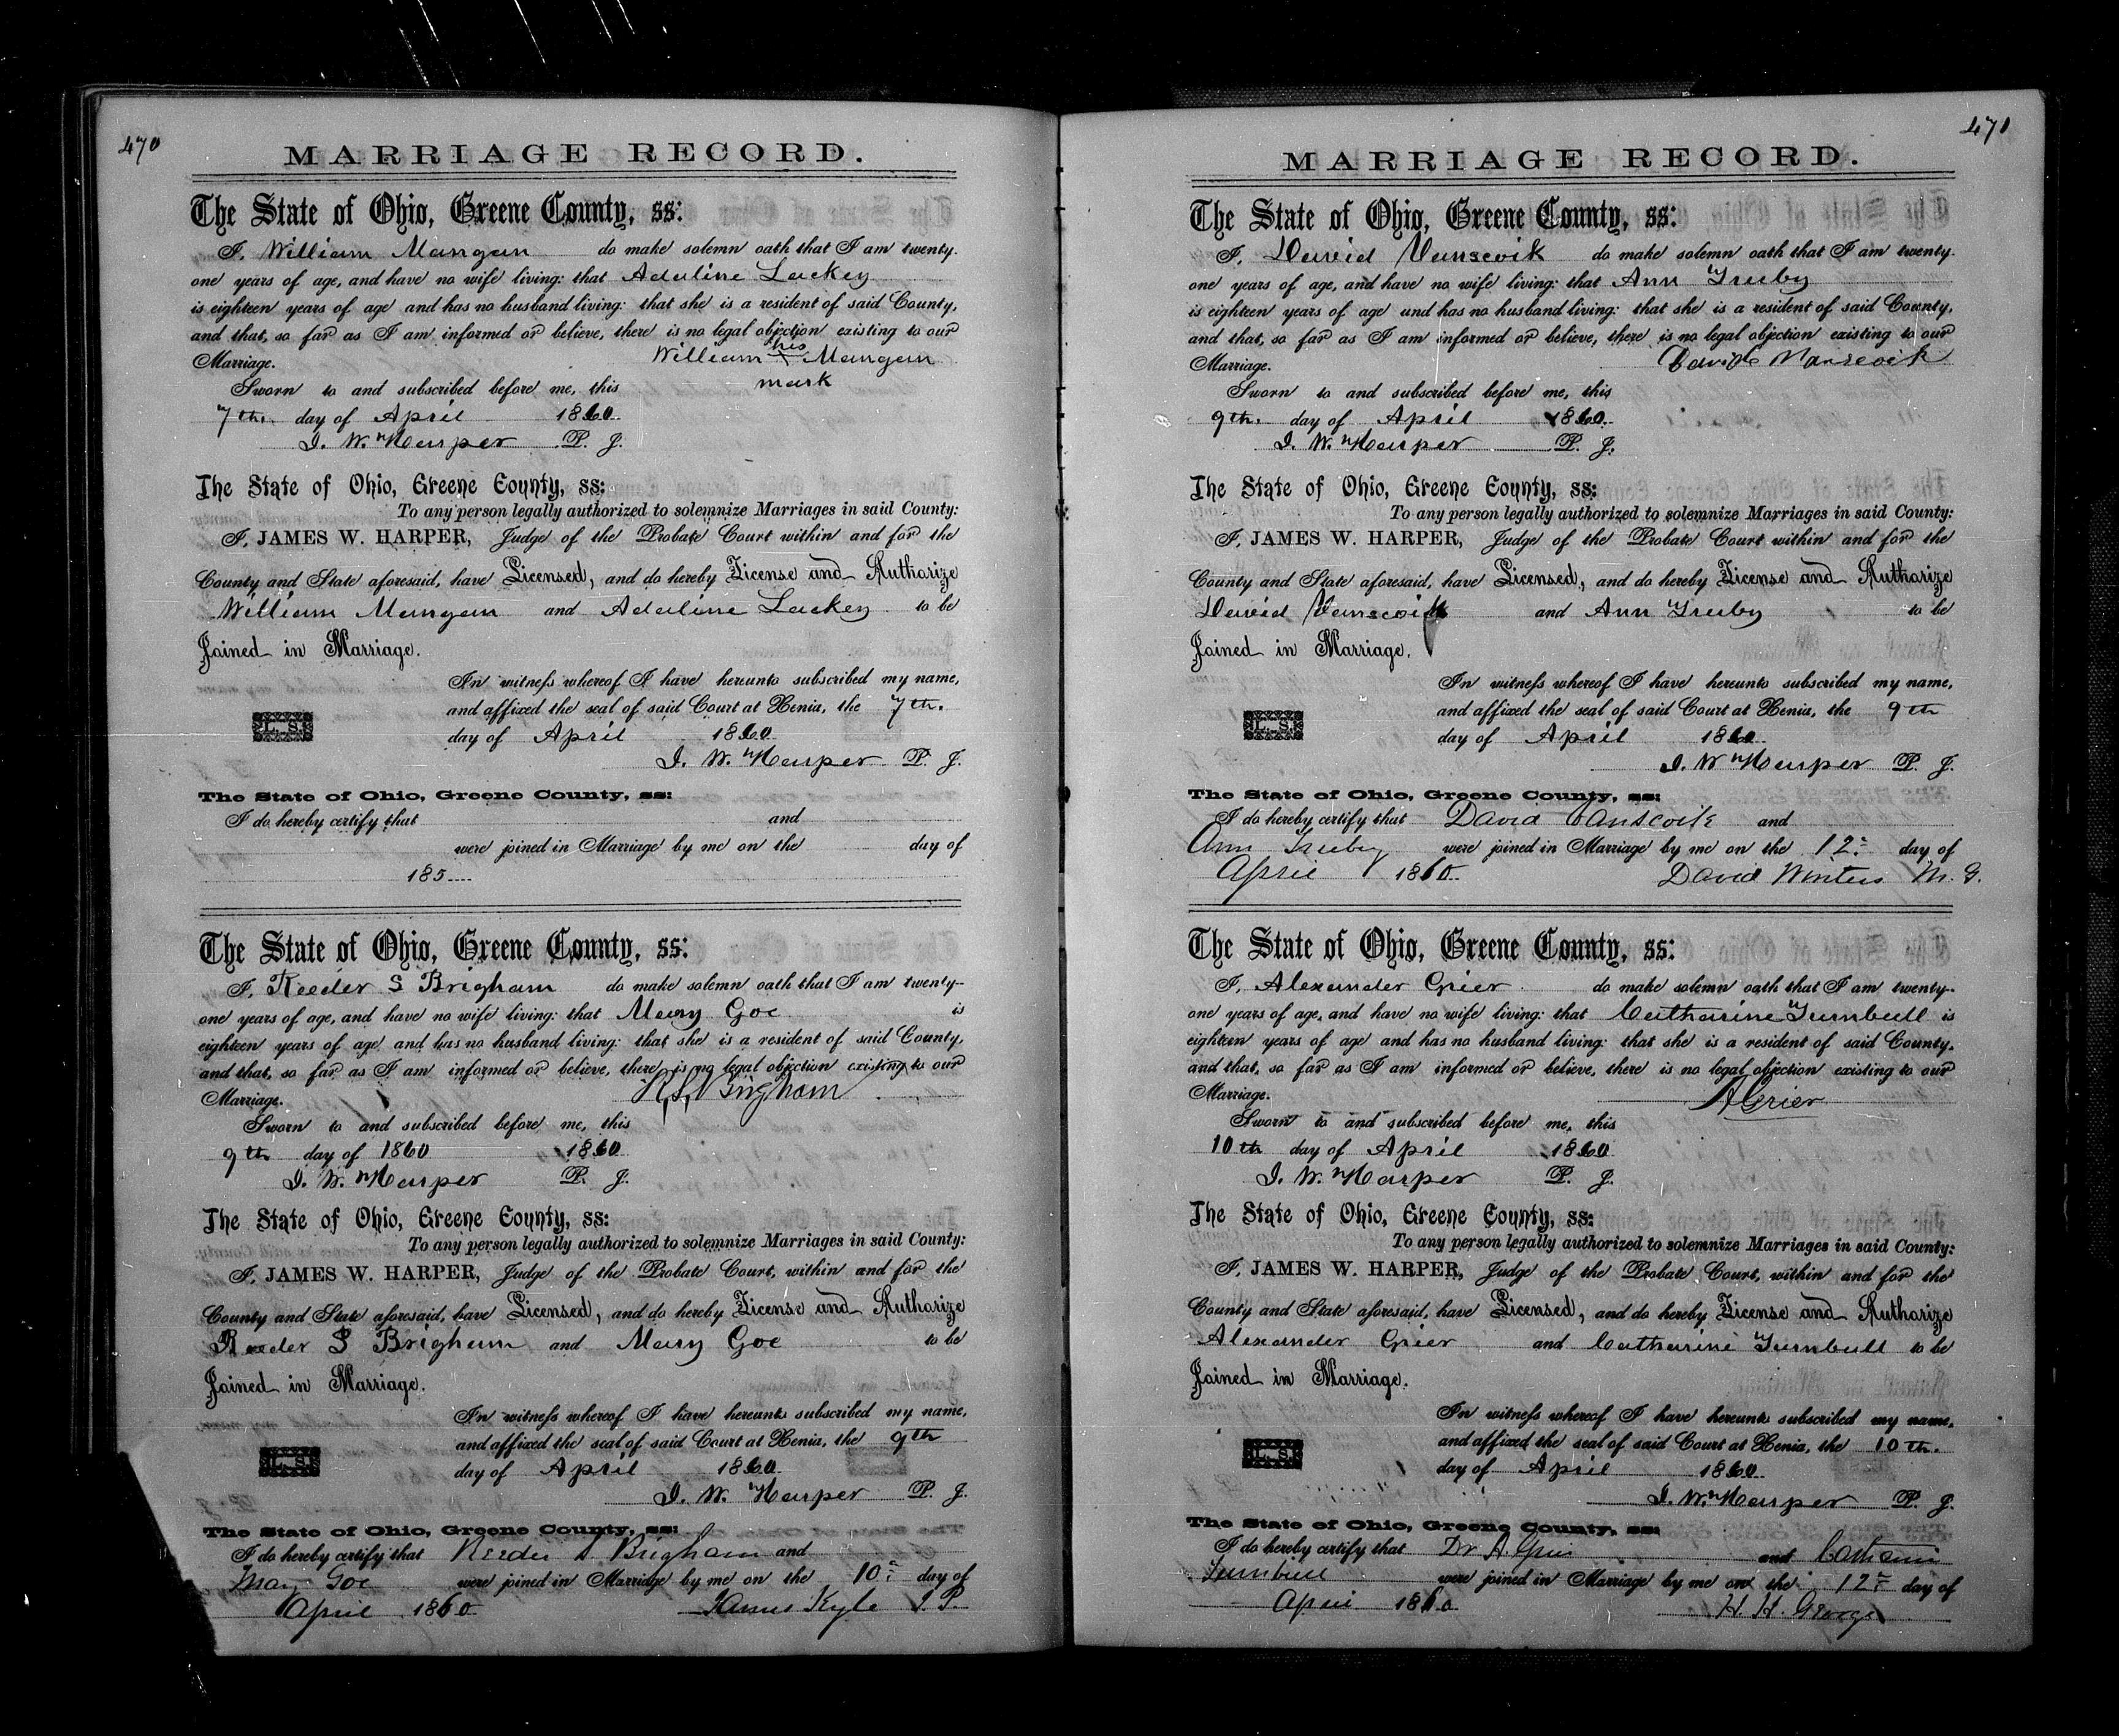 470
MARRIAGE RECORD.
The State of Ohio, Greene County, ss:
I, William Mangan do make solemn oath that I am twenty-
one years of age, and have no wife living: that Adaline Lackey
is eighteen years of age and has no husband living: that she is a resident of said County,
and that, so far as I am informed or believe, there is no legal objection existing to our
Marriage. William his X mark Mangan
Sworn to and subscribed before me, this
7th. day of April 1860.
J. W. Harper P. J.
The State of Ohio, Greene County, ss:
To any person legally authorized to solemnize Marriages in said County:
I, JAMES W. HARPER, Judge of the Probate Court within and for the
County and State aforesaid, have Licensed, and do hereby License and Authorize
William Mangan and Adaline Lackey to be
Joined in Marriage.
In witness whereof I have hereunto subscribed my name,
and affixed the seal of said Court at Xenia, the 7th.
L. S.
day of April 1860
J. W. Harper P. J.
The State of Ohio, Greene County, ss:
I do hereby certify that and
were joined in Marriage by me on the day of
185
The State of Ohio, Greene County, ss:
I, Reeder S Brigham do make solemn oath that I am twenty-
one years of age, and have no wife living: that Mary Goe is
eighteen years of age and has no husband living: that she is a resident of said County,
and that, so far as I am informed or believe, there is no legal objection existing to our
Marriage. R. S. Brigham
Sworn to and subscribed before me, this
9th day of 1860 1860
J. W. Harper P. J.
The State of Ohio, Greene County, ss:
To any person legally authorized to solemnize Marriages in said County:
I, JAMES W. HARPER, Judge of the Probate Court, within and for the
County and State aforesaid, have Licensed, and do hereby License and Authorize
Reeder S Brigham and Mary Goe to be
Joined in Marriage.
In witness whereof I have hereunto subscribed my name,
and affixed the seal of said Court at Xenia, the 9th
L. S.
day of April 1860
J. W. Harper P. J.
The State of Ohio, Greene County, ss:
I do hereby certify that Reeder S. Brigham and
Mary Goe were joined in Marriage by me on the 10th day of
April 1860 James Kyle J. P.
471
MARRIAGE RECORD.
The State of Ohio, Greene County, ss:
I, David Vanscoik do make solemn oath that I am twenty-
one years of age, and have no wife living: that Ann Truby
is eighteen years of age and has no husband living: that she is a resident of said County,
and that, so far as I am informed or believe, there is no legal objection existing to our
Marriage. David Vanscoik
Sworn to and subscribed before me, this
9th. day of April 1860.
J. W. Harper P. J.
The State of Ohio, Greene County, ss:
To any person legally authorized to solemnize Marriages in said County:
I, JAMES W. HARPER, Judge of the Probate Court within and for the
County and State aforesaid, have Licensed, and do hereby License and Authorize
David Vanscoik and Ann Truby to be
Joined in Marriage.
In witness whereof I have hereunto subscribed my name,
and affixed the seal of said Court at Xenia, the 9th
L. S.
day of April 1860
J. W Harper P. J.
The State of Ohio, Greene County, ss:
I do hereby certify that David Vanscoik and
Ann Truby were joined in Marriage by me on the 12th day of
April 1860. David Winters M. G.
The State of Ohio, Greene County, ss:
I, Alexander Grier do make solemn oath that I am twenty-
one years of age, and have no wife living: that Catharine Turnbull is
eighteen years of age and has no husband living: that she is a resident of said County,
and that, so far as I am informed or believe, there is no legal objection existing to our
Marriage. A Grier
Sworn to and subscribed before me, this
10th day of April 1860
J. W. Harper P. J.
The State of Ohio, Greene County, ss:
To any person legally authorized to solemnize Marriages in said County:
I, JAMES W. HARPER, Judge of the Probate Court, within and for the
County and State aforesaid, have Licensed, and do hereby License and Authorize
Alexander Grier and Catharine Turnbull to be
Joined in Marriage.
In witness whereof I have hereunto subscribed my name,
and affixed the seal of said Court at Xenia, the 10th.
L. S.
day of April 1860
J. W. Harper P. J.
The State of Ohio, Greene County, ss:
I do hereby certify that Dr A Grier and Catharine
Turnbull were joined in Marriage by me on the 12th day of
April 1860 H. H. George